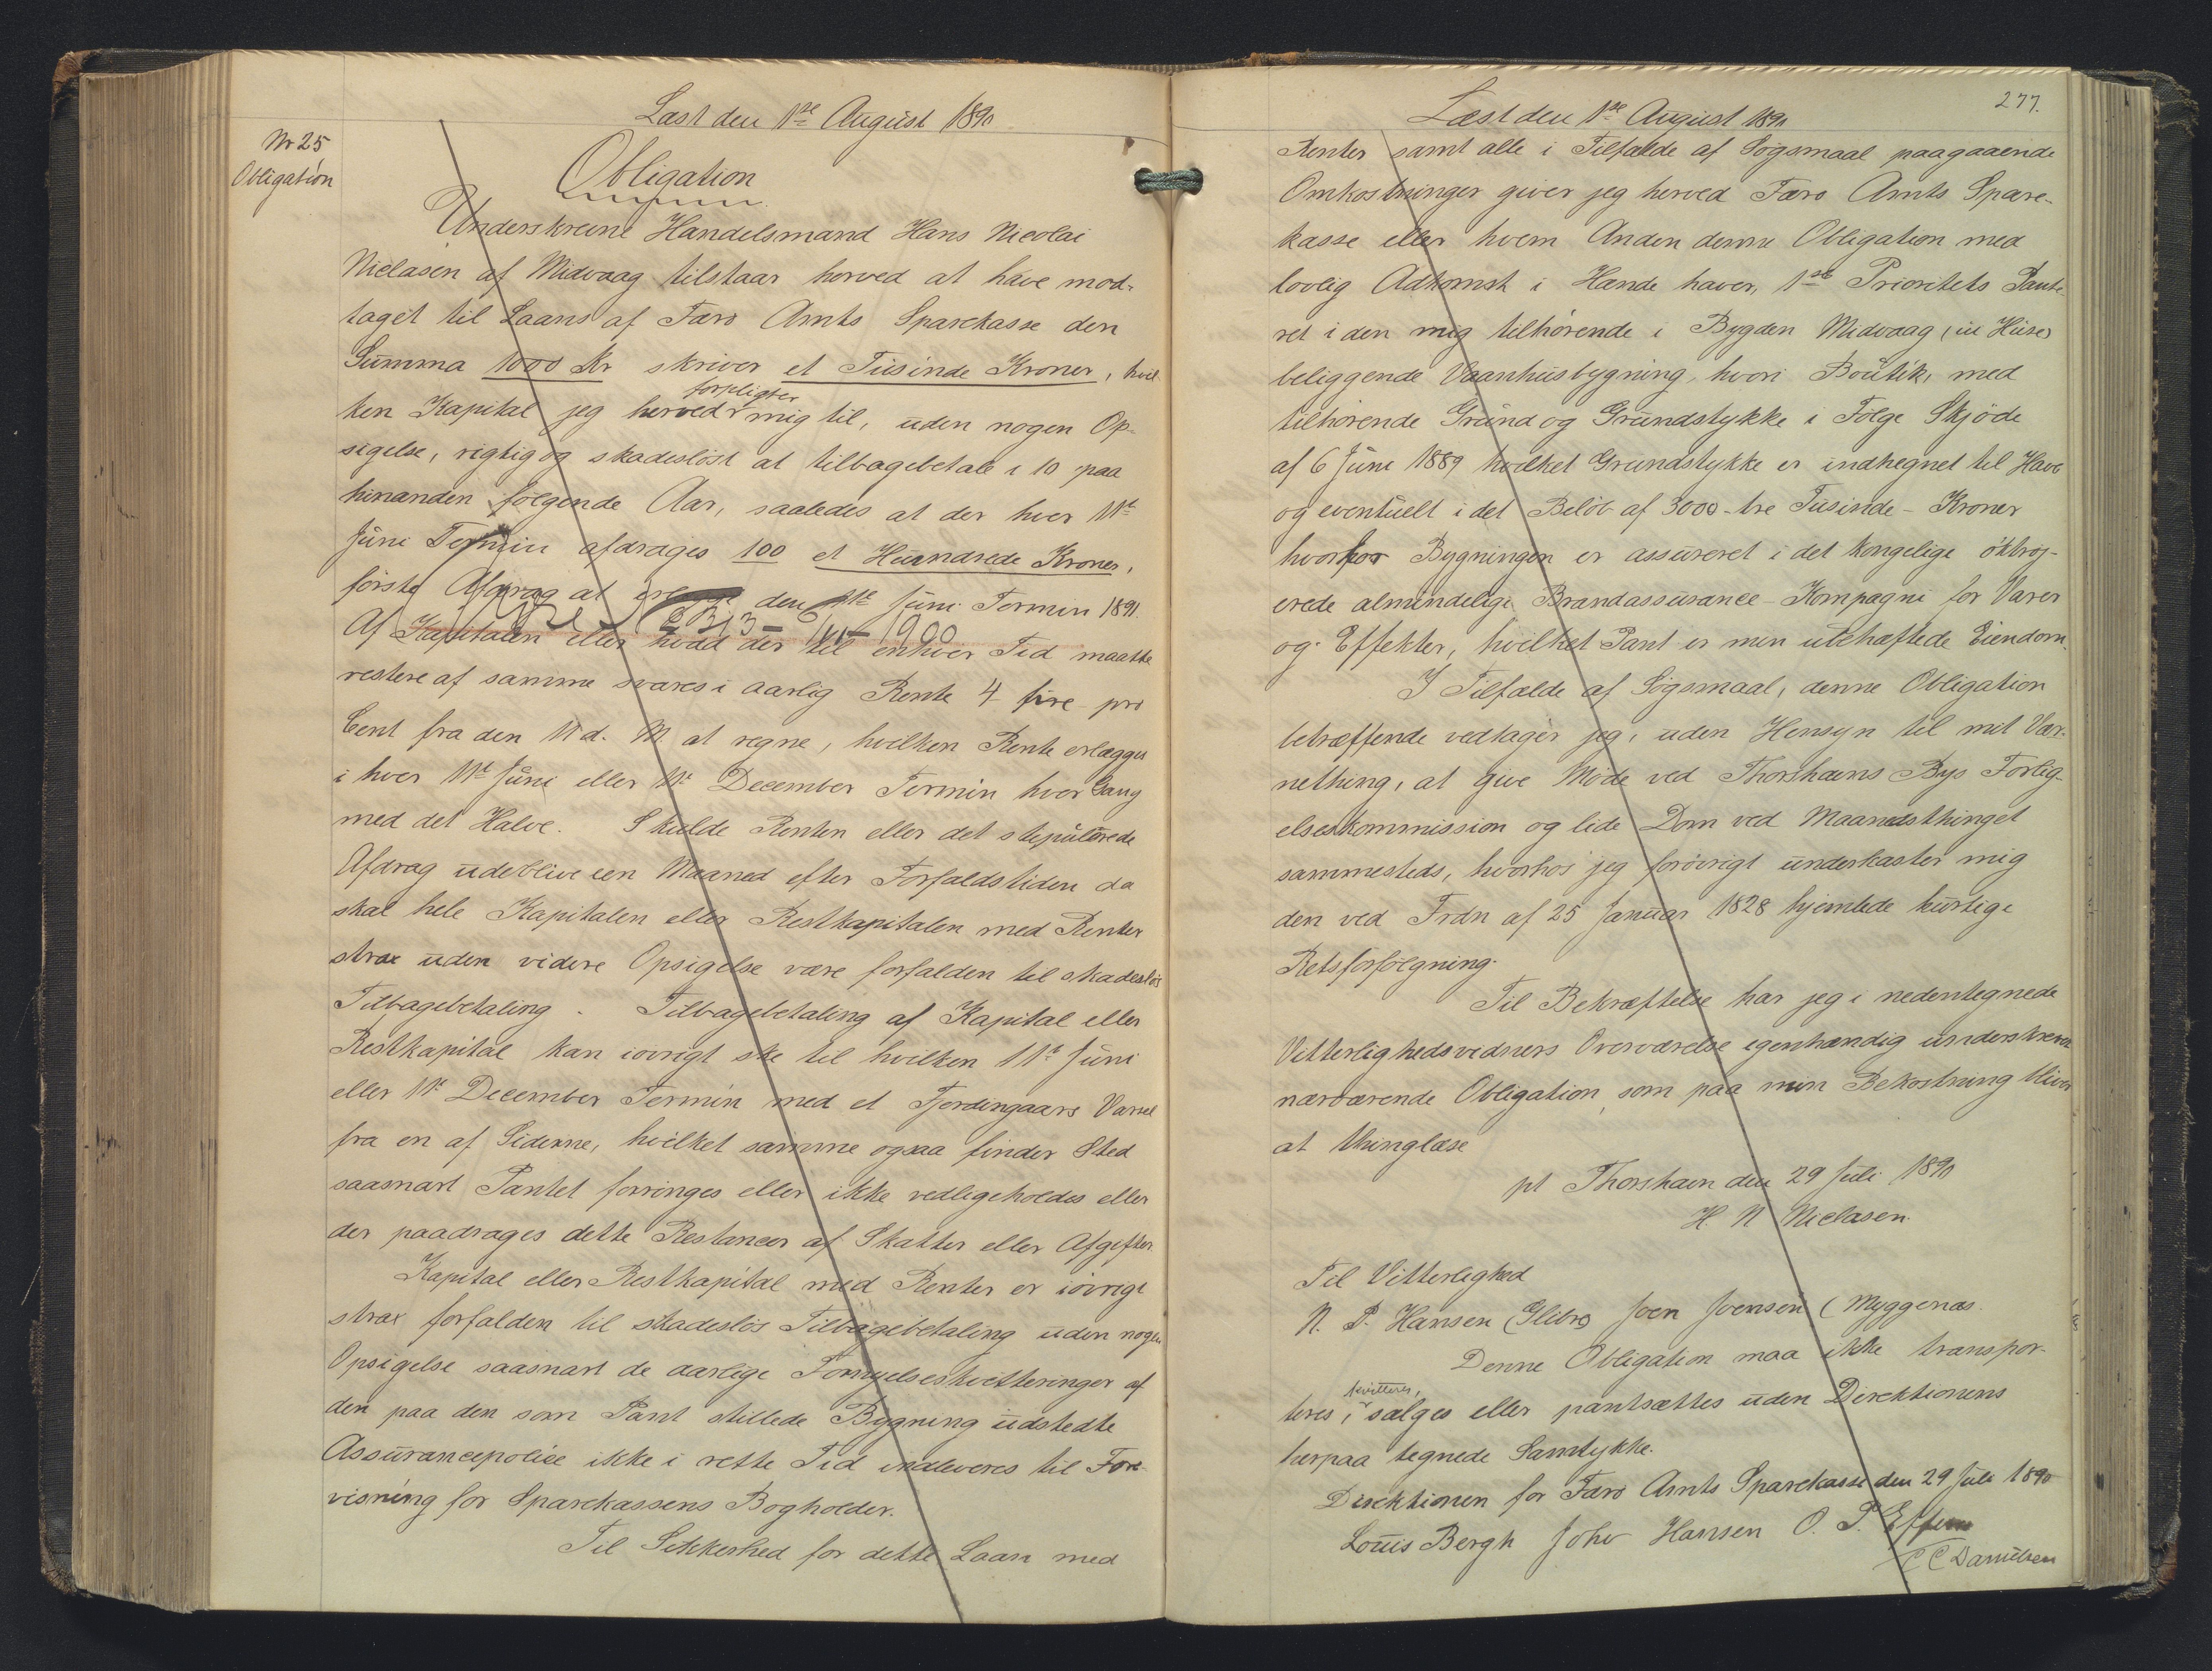 Læst den 1ste August 1890
Nr 25
Obligation
Obligation
Underskrevne Handelsmand Hans Nicolai
Niclasen af Midvaag tilstaar herved at have mod-
taget til Laans af Færø Amts Sparekasse den
Summa 1000 Kr skriver et Tusinde Kroner, hvil-
ken Kapital jeg herved forpligter mig til, uden nogen Op-
sigelse, rigtig og skadesløst at tilbagebetale i 10 paa
hinanden følgende Aar, saaledes at der hver 11te
Juni Termin afdrages 100 et Hundrede Kroner,
første Afdrag at den 11te Juni Termin 1891.
1900
Af Kapitalen eller hvad der til enhver Tid maatte
restere af samme svares i aarlig Rente 4 fire pro
Cent fra den 11 d. M. at regne, hvilken Rente erlægges
i hver 11te Juni eller 11te December Termin hver Gang
med det Halve. Skulde Renten eller det stipulerede
Afdrag udeblive een Maaned efter Forfaldstiden da
skal hele Kapitalen eller Restkapitalen med Renter
strax uden videre Opsigelse være forfalden til skadesløs
Tilbagebetaling. Tilbagebetaling af Kapital eller
Restkapital kan iøvrigt ske til hvilken 11te Juni
eller 11te December Termin med et Fjerdingaars Varsel
fra en af Siderne, hvilket samme ogsaa finder Sted
saasnart Pantet forringes eller ikke vedligeholdes eller
der paadrages dette Restancer af Skatter eller Afgifter.
Kapital eller Restkapital med Renter er iøvrigt
strax forfalden til skadesløs Tilbagebetaling uden nogen
Opsigelse saasnart de aarlige Fornyelseskvitteringer af
den paa den som Pant stillede Bygning udstedte
Assurancepolice ikke i rette Tid indleveres til Fore-
visning for Sparekassens Bogholder.
Til Sikkerhed for dette Laan med
277.
Læst den 1ste August 1890
Renter samt alle i Tilfælde af Søgsmaal paagaaende
Omkostninger giver jeg herved Færø Amts Spare-
kasse eller hvem Anden denne Obligation med
lovlig Adkomst i Hænde haver, 1ste Prioritets Pante-
ret i den mig tilhørende i Bygden Midvaag, ui Húse)
beliggende Vaanhusbygning, hvori Boutik, med
tilhørende Grund og Grundstykke i Følge Skjøde
af 6 Juni 1889 hvilket Grundstykke er indhegnet til Have
og eventuelt i det Beløb af 3000 - tre Tusinde - Kroner
hvorfor Bygningen er assureret i det kongelige oktroj-
erede almindelige Brandassurance-Kompagni for Varer
og Effekter, hvilket Pant er min ubehæftede Eiendom.
I Tilfælde af Søgsmaal, denne Obligation
betræffende vedtager jeg, uden Hensyn til mit Vær-
nething, at give Møde ved Thorshavns Bys Forlig-
elseskommission og lide Dom ved Maanedsthinget
sammesteds, hvorhos jeg forøvrigt underkaster mig
den ved Frdn af 25 Januar 1828 hjemlede hurtige
Retsforfølgning.
Til Bekræftelse har jeg i nedentegnede
Vitterlighedsvidners Overværelse egenhændig underskrevet
nærværende Obligation, som paa min Bekostning bliver
at thinglæse
pt Thorshavn den 29 Juli 1890
H N Niclasen.
Til Vitterlighed
N. P. Hansen (Glibre) Joen Joensen (Myggenæs.
Denne Obligation maa ikke transpor-
teres, kvitteres, sælges eller pantsættes uden Direktionens
herpaa tegnede Samtykke.
Direktionen for Færø Amts Sparekasse den 29 Juli 1890
Louis Bergh Johs Hansen O. P. Effersø
C C Danielsen